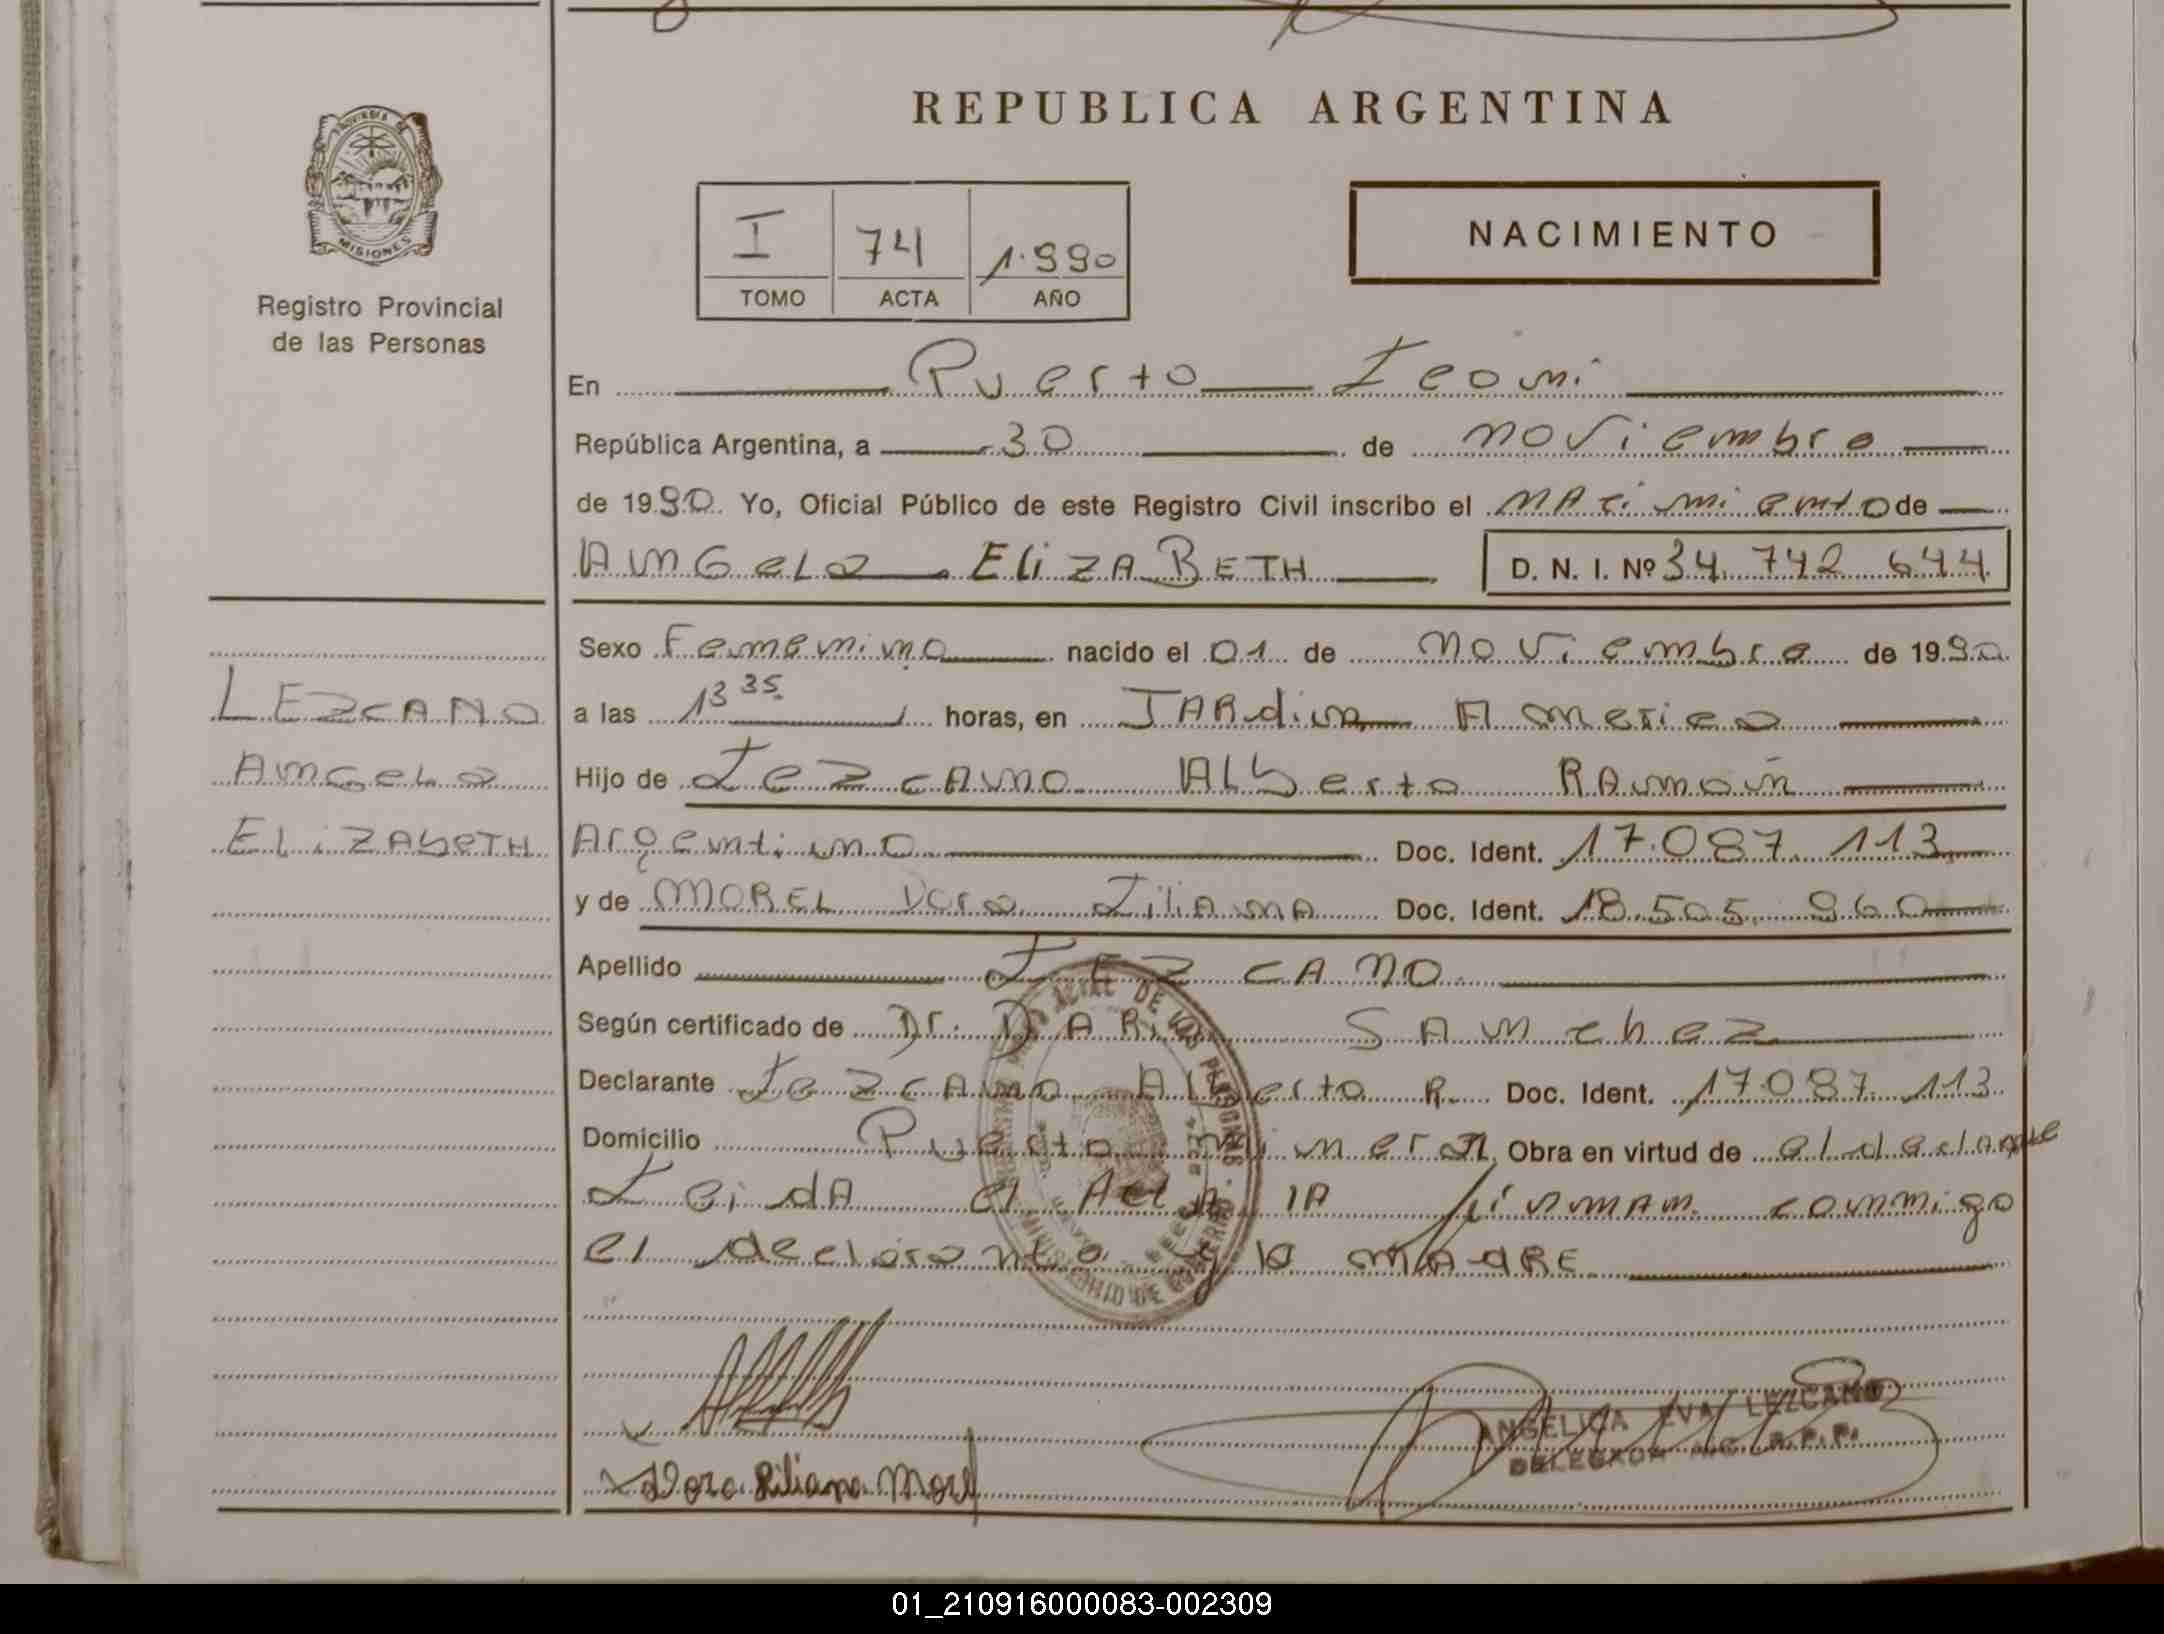 REPUBLICA ARGENTINA
PROVINCIA DE
MISIONES
Registro Provincial
de las Personas
I 74 1.990
TOMO ACTA AÑO
NACIMIENTO
En Puerto Leoni
República Argentina, a 30 de noviembre
de 1990. Yo, Oficial Público de este Registro Civil inscribo el nacimiento de
Angela Elizabeth D. N. I. Nº 34.742.644
Sexo Femenino nacido el 01 de noviembre de 1990
LEZCANO
Angela
Elizabeth
a las 13 35 horas, en Jardin America
Hijo de Lezcano Alberto Ramón
Argentino Doc. Ident. 17.087.113
y de MOREL Dora Liliana Doc. Ident. 18.505.960
Apellido LEZCANO
Según certificado de Dr. Sanchez
Declarante Lezcano Alberto R. Doc. Ident. 17.087.113
Domicilio Puerto Mineral Obra en virtud de el declarante
Leida el Acta la firman conmigo
el declarante y la MADRE
Dora Liliana Morel
ANGELICA EVA LEZCANO
DELEGADA R.P.P.
01_210916000083-002309